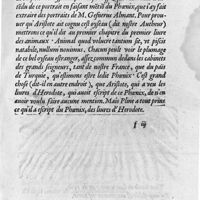 tēdu de ce portrait en faisant mētiō du Phœnix, que i'ay fait
extraire des portraits de M. Gesnerus Almant. Pour prou-
uer qu'Aristote ait cogneu cest oyseau (dit nostre Autheur)
mettrons ce qu'il dit au premier chapitre du premier liure
des animaux. Animal quod volucre tantum sit, vt piscis
natabile, nullum nouimus. Chacun peult voir le plumage
de cest oyseau estranger, assez commun dedans les cabinets
des grands seigneurs, tant de nostre France, que du païs
de Turquie, qu'estimons estre ledit Phœnix. C'est grand
chose (dit-il en autre endroit) que Aristote, qui a veu les
liures d'Herodote, qui auoit escript de ce Phœnix, de n'en
auoir voulu faire aucune mention. Mais Pline a tout prins
ce qu'il a escript du Phœnix, des liures d'Herodote.
f iij